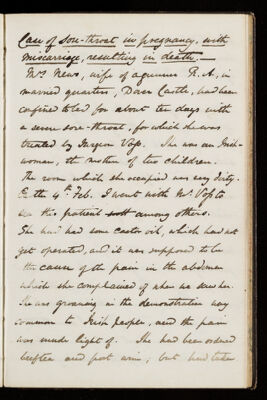 Case of sore-throat in pregnancy, with
miscarriage, resulting in death. —
Mrs News, wife of a gunner R. A., in
married quarters, Dover Castle, had been
confined to bed for about ten days with
a severe sore-throat, for which she was
treated by Surgeon Voss. She was an Irish-
woman, the mother of two children.
The room which she occupied was very dirty.
On the 4th Feb. I went with Mr Voss to
see this patient among others.
She had had some castor oil, which had not
yet operated, and it was supposed to be
the cause of the pain in the abdomen
which she complained of when we saw her.
She was groaning in the demonstrative way
common to Irish people, and the pain
was made light of. She had been ordered
beeftea and port wine; but had taken